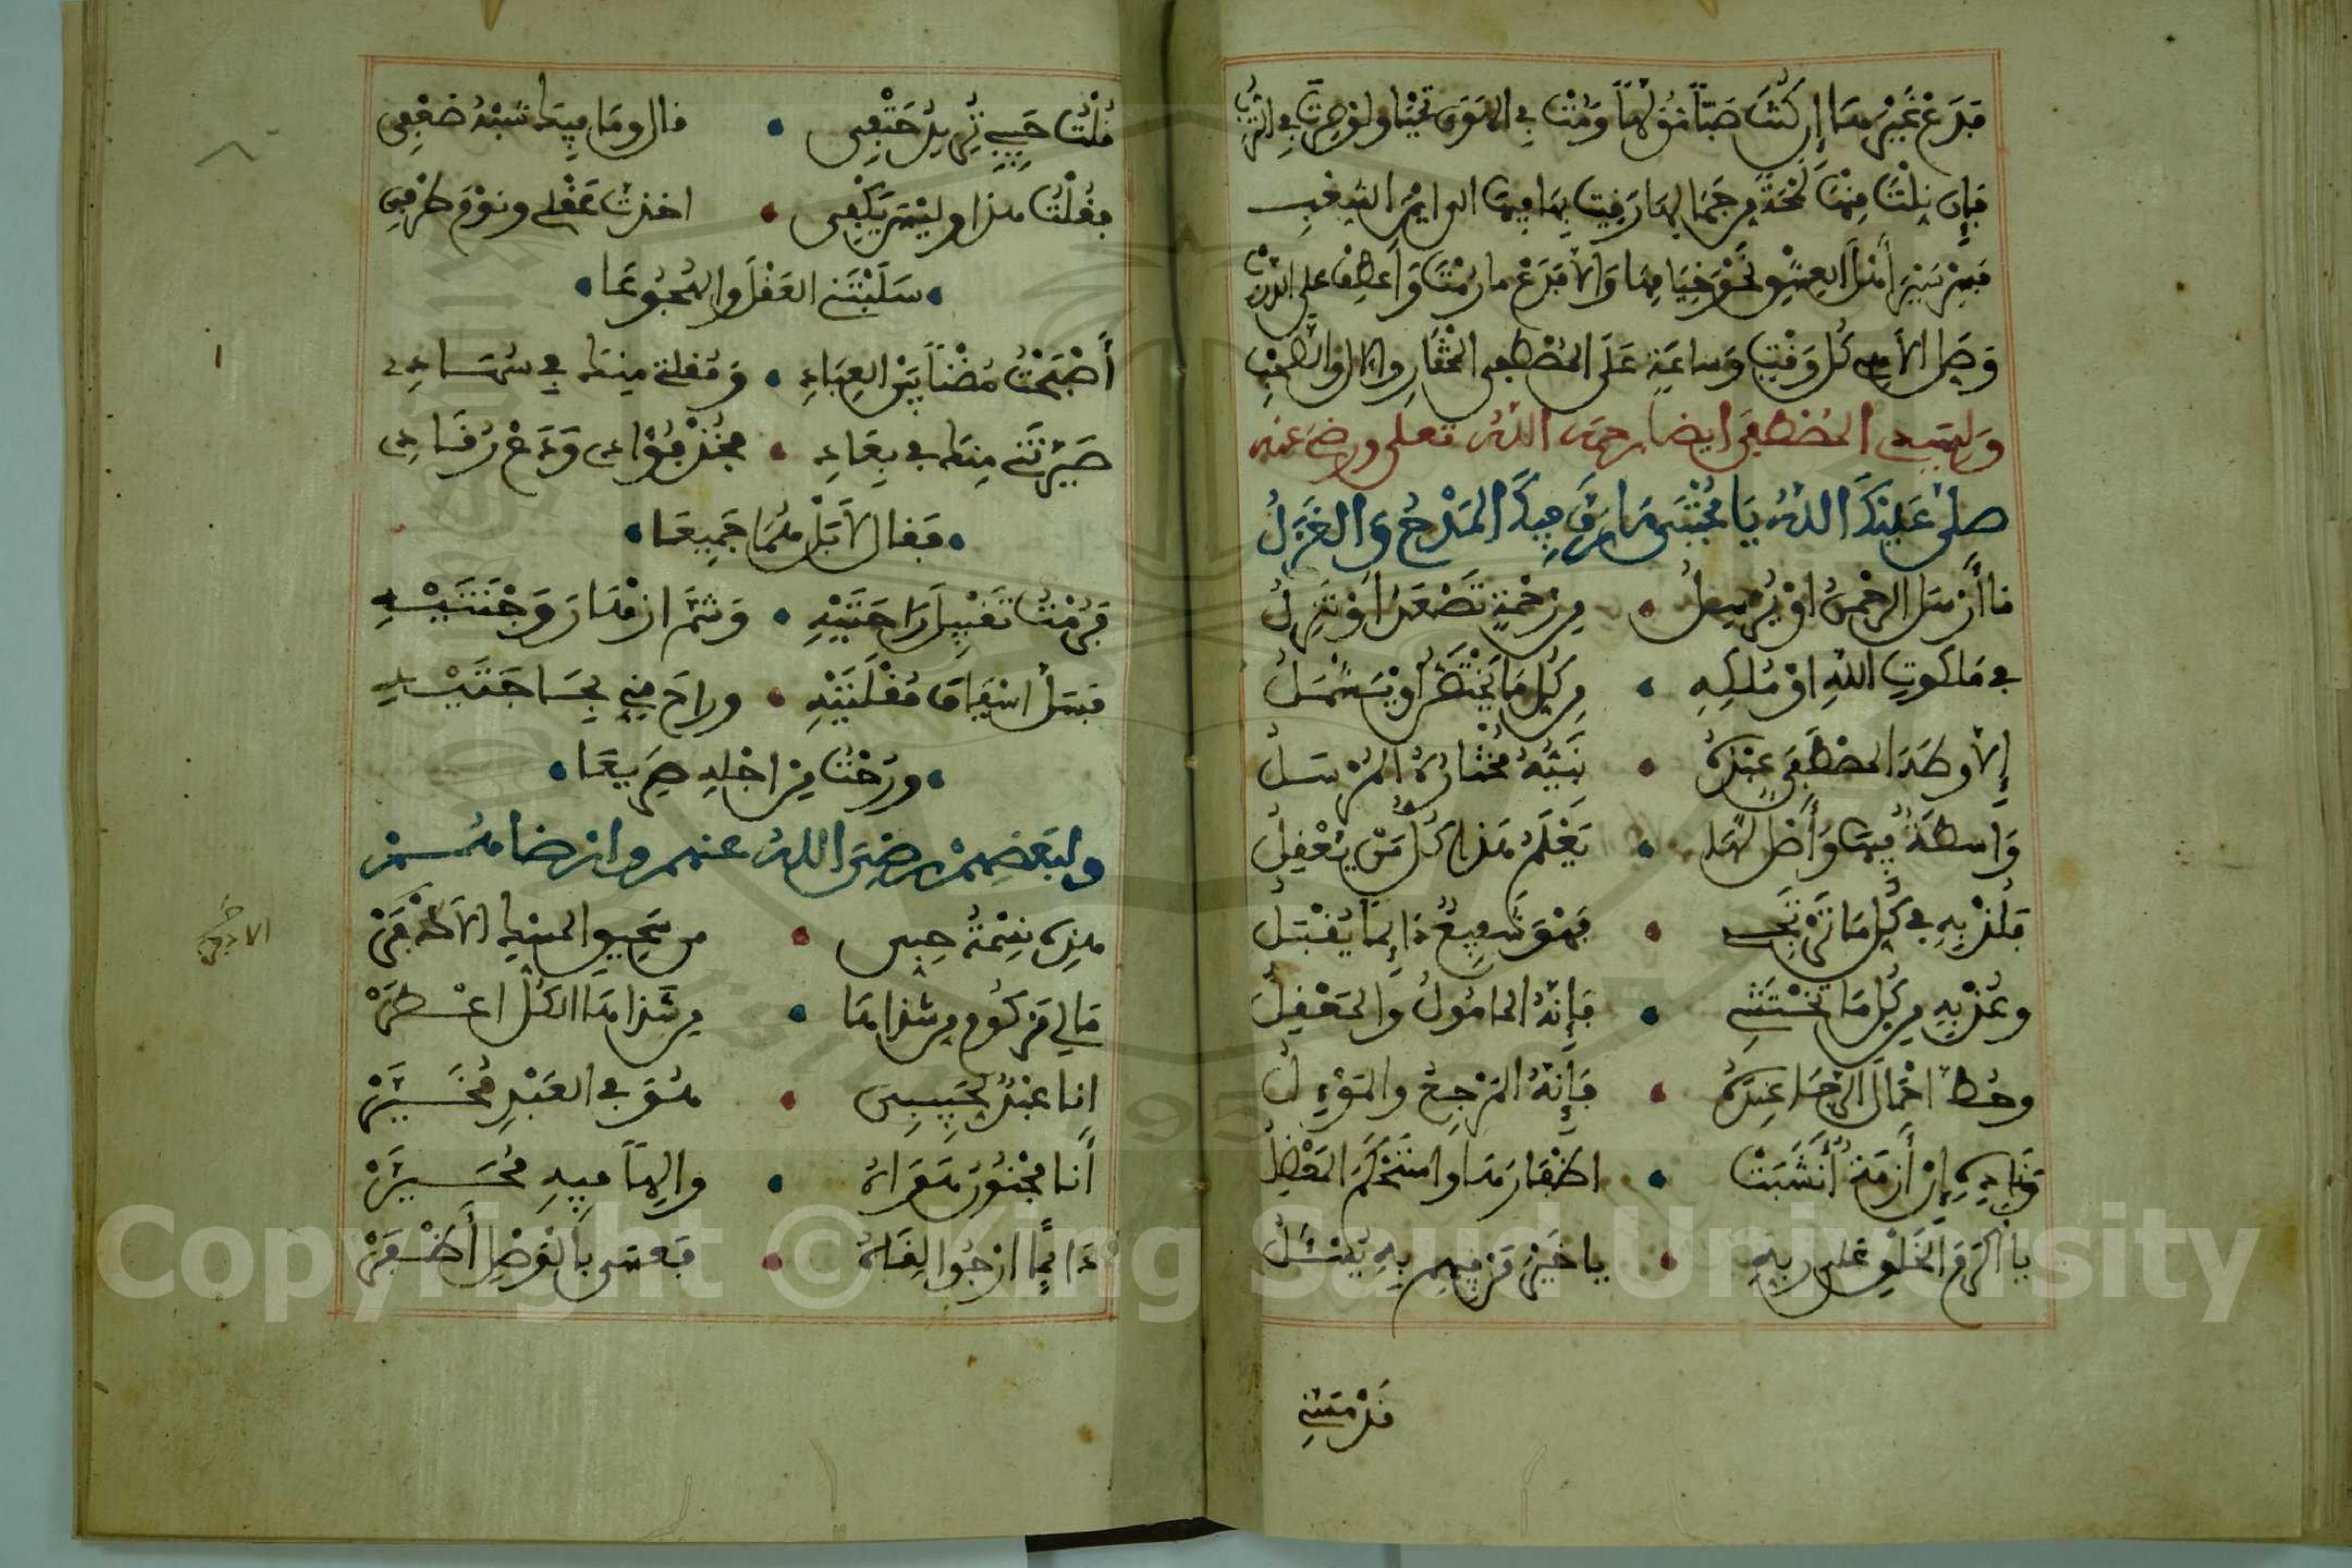 فدع غير هذا إن كنت صبا مولها ومت في الهوى تحيا ولو صرت في الترب
فإن نلت منها لمحة من جمالها رقيت بها فيها الى ايمن الشعب
فسر سير أهل العشق نحو خيامها والا فدع ما رمت واعطف على الدرب
وصل الاهي كل وقت وساعة على المصطفى المختار والال والصحب
ولسيدي المصطفى ايضا رحمه الله تعلى ورضي عنه
صلى عليك الله يا مجتبى ما رق فيك المدح والغزل
ما أرسل الرحمن او يرسل من رحمة تصعد او تنزل
في ملكوت الله او ملكه من كل ما يختص او يشمل
إلا وطه المصطفى عبده نبيه مختاره المرسل
واسطة فيها وأصل لها يعلم هذا كل من يعقل
فلذ به في كل ما ترتجي فهو شفيع دائما يقبل
وعذ به من كل ما تختشي فإنه المامول والمعقل
وحط احمال الرجا عنده فإنه المرجع والموئل
وناده إن أزمة أنشبت اظفارها واستحكم المعضل
يا أكرم الخلق على ربه يا خير من فيهم به يسئل
قد مسني
قلت حبيبي تريد حتفي قال وما فيك شبه ضعفي
فقلت هذا وليس يكفي اخذت عقلي ونوم طرفي
سلبتني العقل والهجوعا
أصبحت مضنا بين العباد ومقلة منك في سهاد
صيرتني منك في بعاد فخذ فؤادي ودع رقادي
فقال لا بل هما جميعا
فرمت تقبيل راحتيه وشم ازهار وجنتيه
فسل اسياف مقلتيه وراح مني بحاجتيه
ورحت من اجله صريعا
ولبعضهم رضي الله عنهم وارضاهم
هذه نسمة حبي من سحيق المسك الاذفر
مالي مزكوم من شذاها من شذاها الكل اعطر
انا عبد لحبيبي هو في العبد مخير
أنا مجنون هواه والها فيه محير
دائما ارجوا لقاه فعسى بالوصل أظفر